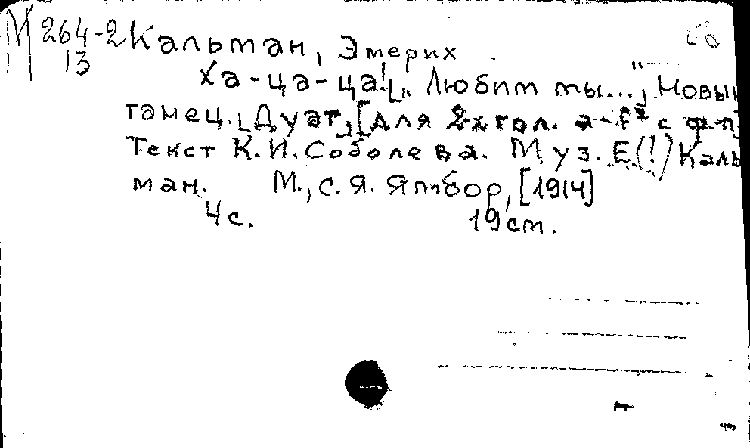 М 264-2 Кальман, Эмерих
13
Ха-ца-ца! „Любим мы...", Новый
танец. [Дуэт, [для 2-х гол. a-f² с ф-п]
Текст К. И. Соболева. Муз. Е(!) Каль
ман. М., С. Я. Ямбор, [1914]
4 с. 19 cm.